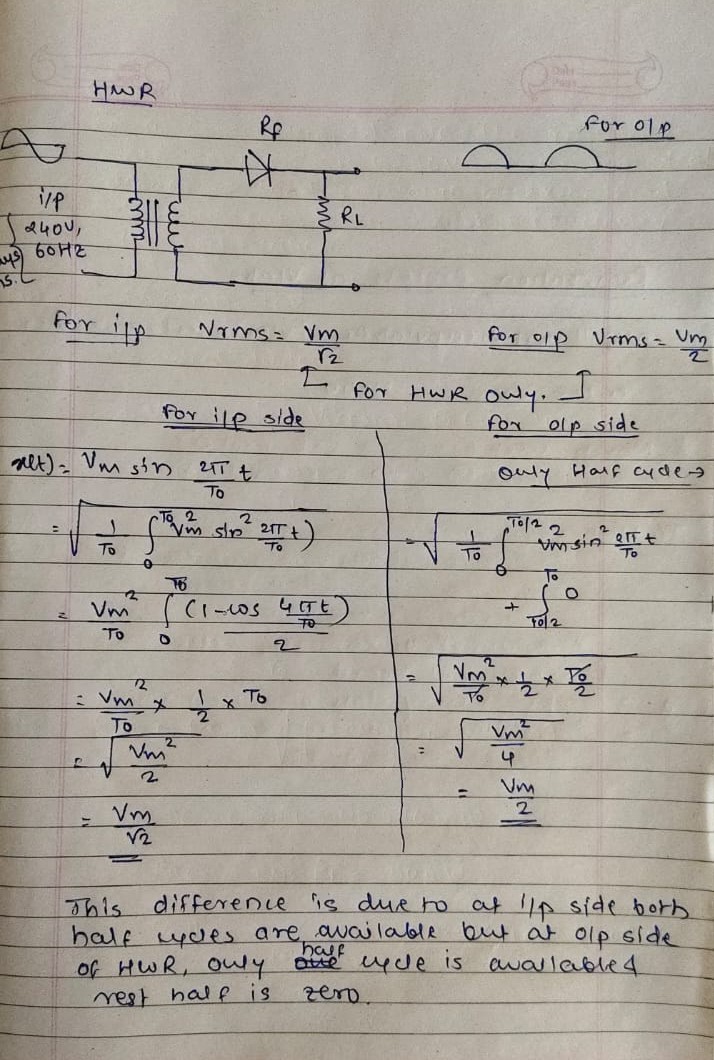 HWR
Rf
For o/p
i/p
240V,
60Hz
RL
For i/p Vrms = Vm/√2 For o/p Vrms = Vm/2
For HWR only.
For i/p side
x(t) = Vm sin 2π/To t
= √(1/To ∫₀^To Vm² sin² 2π/To t)
= Vm²/To ∫₀^To (1-cos 4πt/To)/2
= Vm²/To × 1/2 × To
= √(Vm²/2)
= Vm/√2
For o/p side
Only Half cycle →
= √(1/To ∫₀^To/2 Vm² sin² 2π/To t
+ ∫_To/2^To 0
= √(Vm²/To × 1/2 × To/2)
= √(Vm²/4)
= Vm/2
This difference is due to at i/p side both
half cycles are available but at o/p side
of HWR, only half cycle is available &
rest half is zero.